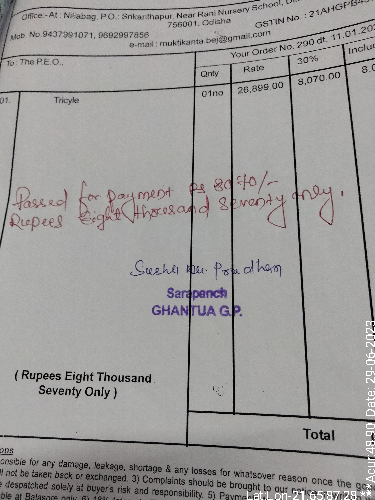 Office.-At : Nilabag, P.O.: Srikanthapur, Near Rani Nursery School,
756001, Odisha
GSTIN No. :
Mob No.9437991071, 9692997856
e-mail : muktikanta.bej@gmail.com
Your Order No. 290 dt. 11.01.
To : The P.E.O.,
Qnty Rate 30%
01. Tricyle 01no 26,899.00 8,070.00
Passed for payment Rs 8070/-
Rupees Eight thousand seventy only.
Sarapanch
GHANTUA G.P.
( Rupees Eight Thousand
Seventy Only )
Total
onsible for any damage, leakage, shortage & any losses for whatsover reason once the
ll not be taken back or exchanged. 3) Complaints should be brought to our
e despatched solely at buyer's risk and responsibility. 5)
Date: 29-06-2023